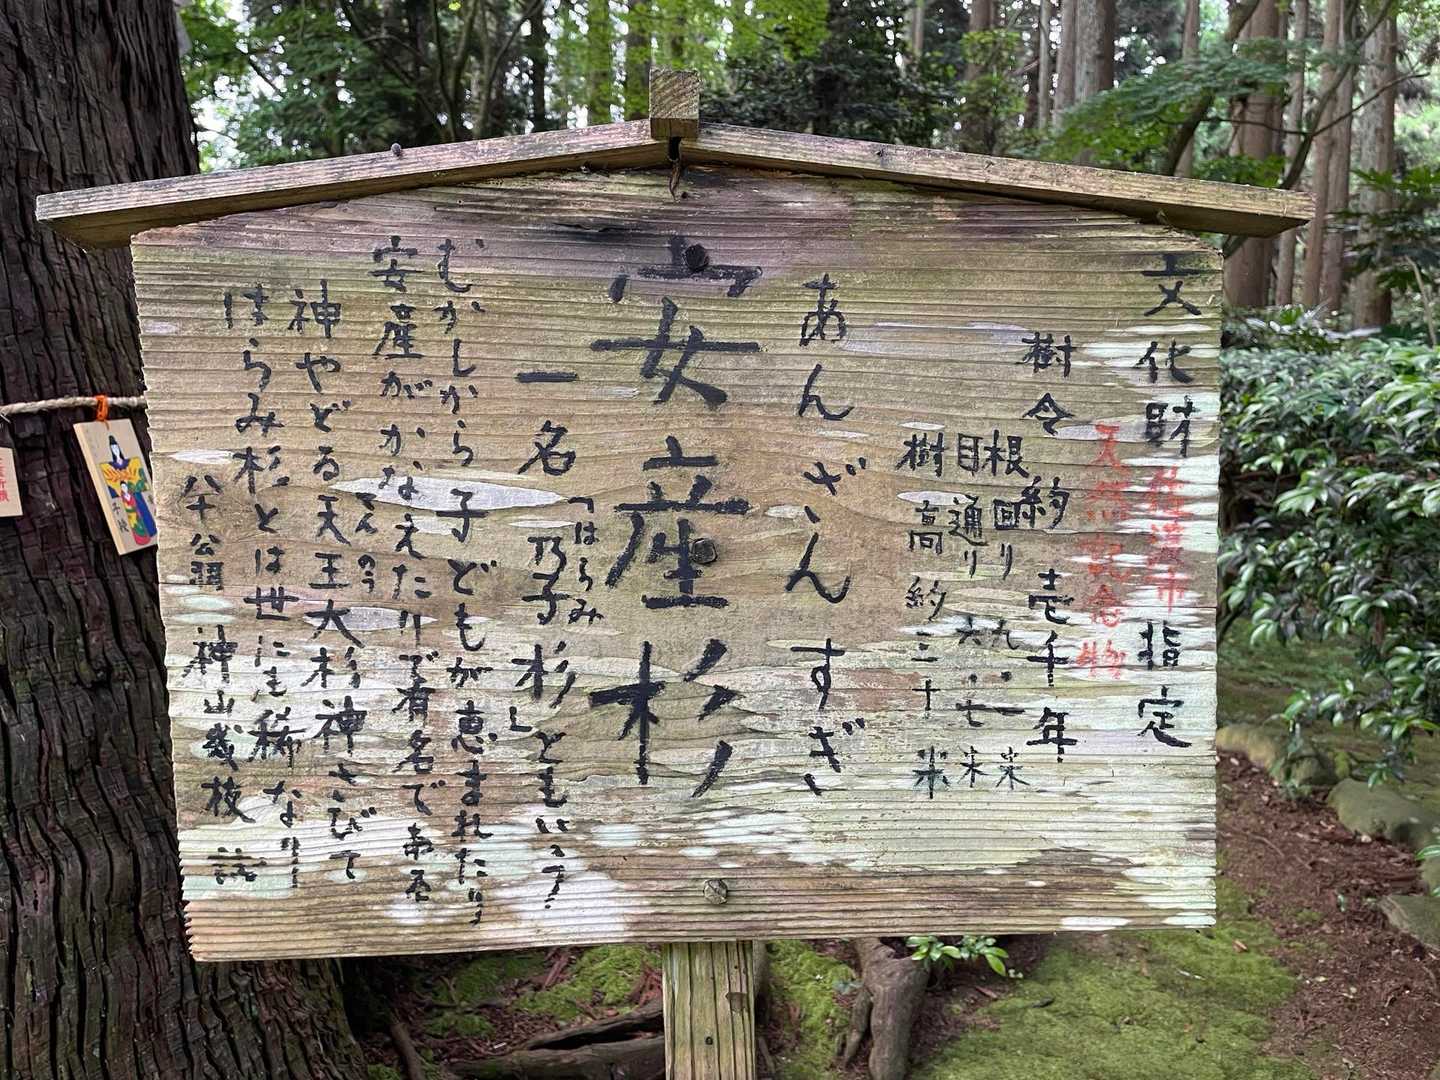 文化財 佐渡市 指定
天然記念物
樹令 約 壱千年
根回り 九・一米
目通り 六・七米
樹高 約 三十 米
あんざんすぎ
安産杉
一名「はらみ
乃子杉」ともいう
むかしから子どもが恵まれたり
安産がかなえたりで有名である
神やどる天王大杉神さびて
はらみ杉とは世にも稀なり
神山 枝